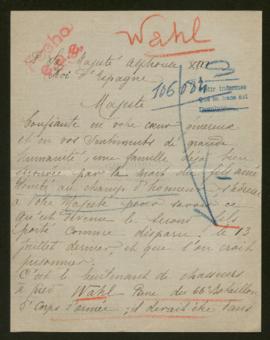 Wahl
Fecha
A Sa Majesté Alphonse XIII
Roi d'Espagne
Majesté
Confiante en votre cœur
et en vos sentiments de grande
humanité, une famille déjà bien
par la mort du fils aîné
tombé au champ d'honneur,
à Votre Majesté pour savoir ce
qu'est devenu le second fils
porté comme disparu le 13
Juillet dernier, et que l'on croit
prisonnier.
C'est le lieutenant de chasseurs
à pied Wahl René des 66e Bataillon
5e Corps d'armée, il devait être dans